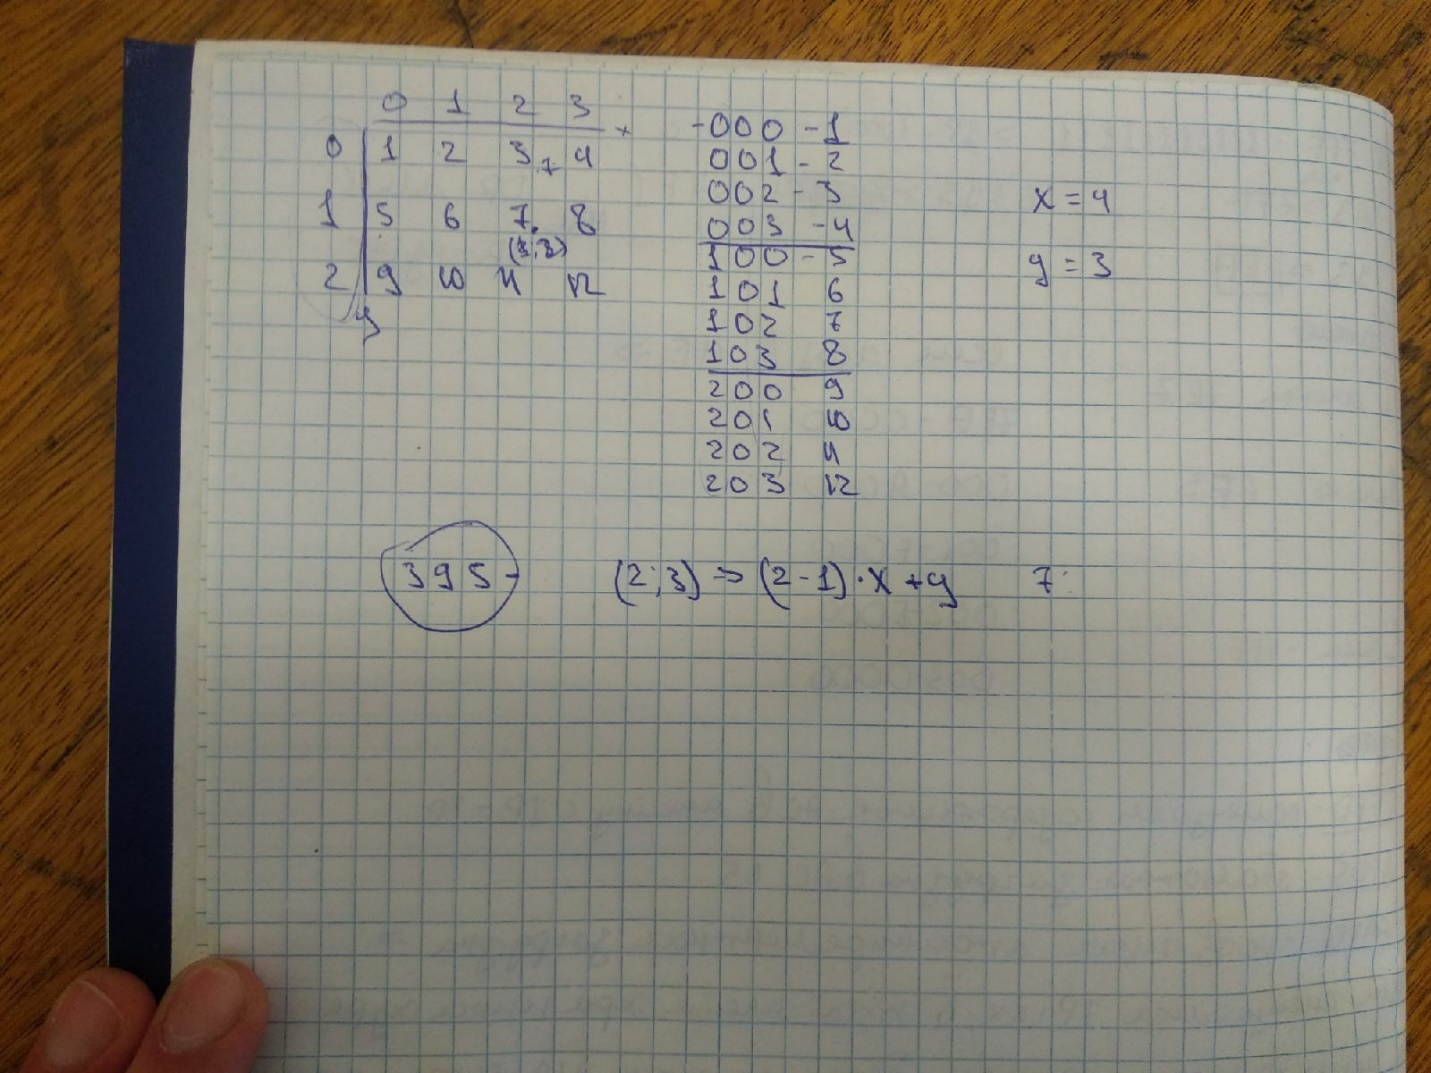 0 1 2 3
0 1 2 3 4
1 5 6 7 8
2 9 10 11 12
y
-000 -1
001 - 2
002 - 3
003 - 4
100 - 5
101 6
102 7
103 8
200 9
201 10
202 11
203 12
x = 4
y = 3
395
(2;3) => (2-1)·x+y 7